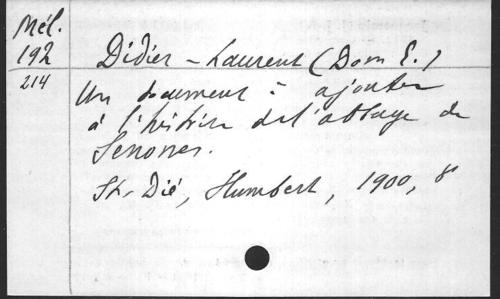 Mél.
192
214
Didier-Laurent (Dom E.)
Un document à ajouter
à l'histoire de l'abbaye de
Senones.
St-Dié, Humbert, 1900, 8°